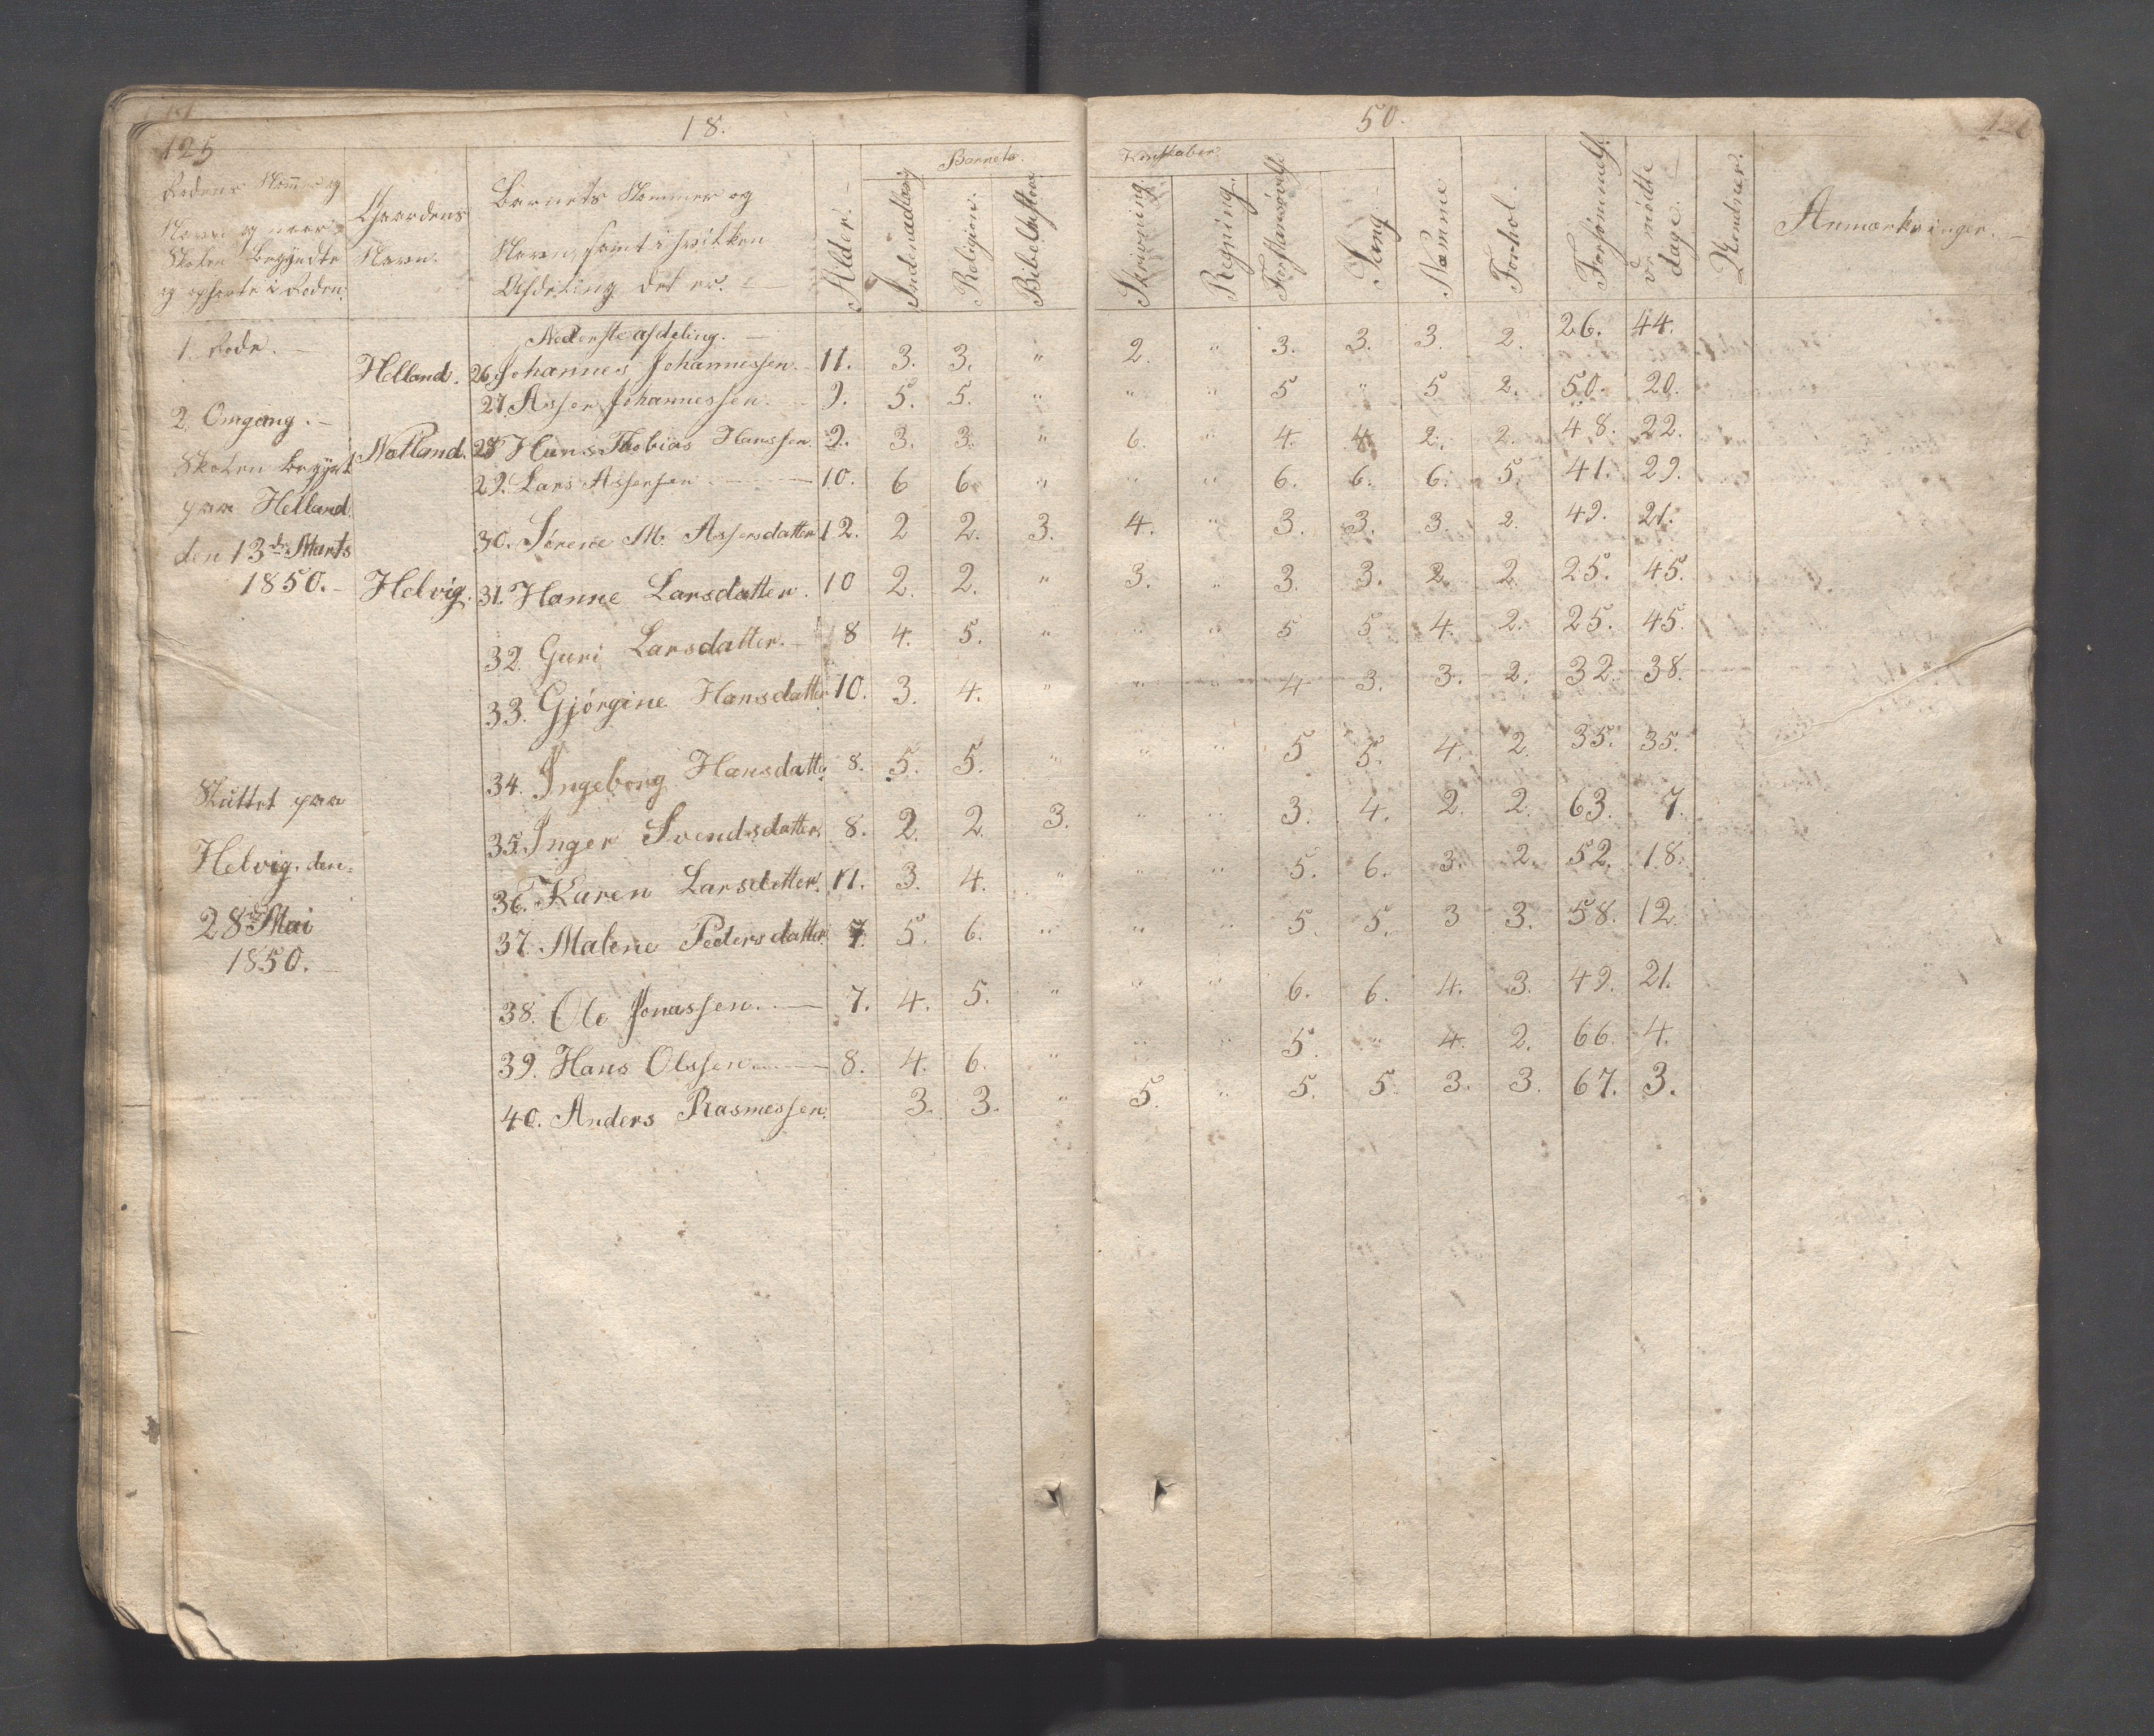 125
18.
50.
Rodens Nommer og
Navn og naar
Skolen begyndte
og ophørte i Roden.
Gaardens
Navn.
Barnets Nommer og
Navn, samt i hvilken
Afdeling det er.
Alder.
Barnets
Kundskaber
Indenadlæsning
Religion.
Bibelhistorie
Skrivning.
Regning.
Forstandsøvelse
Sang
Nemme
Forhol.
Forsømmelse
mødte
dage.
Anmærkninger.
1. Rode.
Nederste afdeling.
Helland. 26. Johannes Johannessen. 11. 3. 3. " 2. " 3. 3. 3. 2. 26. 44.
27. Asser Johannessen. 9. 5. 5. " " " 5 " 5 2. 50. 20.
2. Omgang.
Nœtland. 28 Hans Thobias Hanssen 9. 3. 3. " 6. " 4. 4. 2. 2. 48. 22.
29. Lars Assersen 10. 6 6 " " " 6. 6. 6. 5. 41. 29.
Skolen begynt
paa Helland
den 13de Marts
1850.
30. Sørene M. Assersdatter 12. 2 2. 3. 4. " 3. 3. 3. 2. 49. 21.
Helvig. 31. Hanne Larsdatter. 10 2. 2. " 3. " 3. 3. 2. 2. 25. 45.
32. Guri Larsdatter. 8 4. 5. " " " 5 5 4. 2. 25. 45.
33. Gjørgine Hansdatter 10. 3. 4. " " " 4 3. 3. 2. 32. 38.
34. Ingeborg Hansdatt. 8. 5. 5. " " " 5 5. 4. 2. 35. 35.
Sluttet paa
Helvig. den
28de Mai
1850.
35. Inger Svendsdatter 8. 2. 2. 3. " " 3. 4. 2. 2. 63. 7.
36. Karen Larsdatter. 11. 3. 4. " " " 5. 6. 3. 2. 52. 18.
37. Malene Pedersdatter 7. 5. 6. " " " 5. 5. 3 3. 58. 12.
38. Ole Jonassen. 7. 4. 5. " " " 6. 6. 4. 3. 49. 21.
39. Hans Olssen 8. 4. 6. " " " 5. " 4. 2. 66. 4.
40. Anders Rasmessen. 3. 3. " 5. " 5. 5. 3. 3. 67. 3.